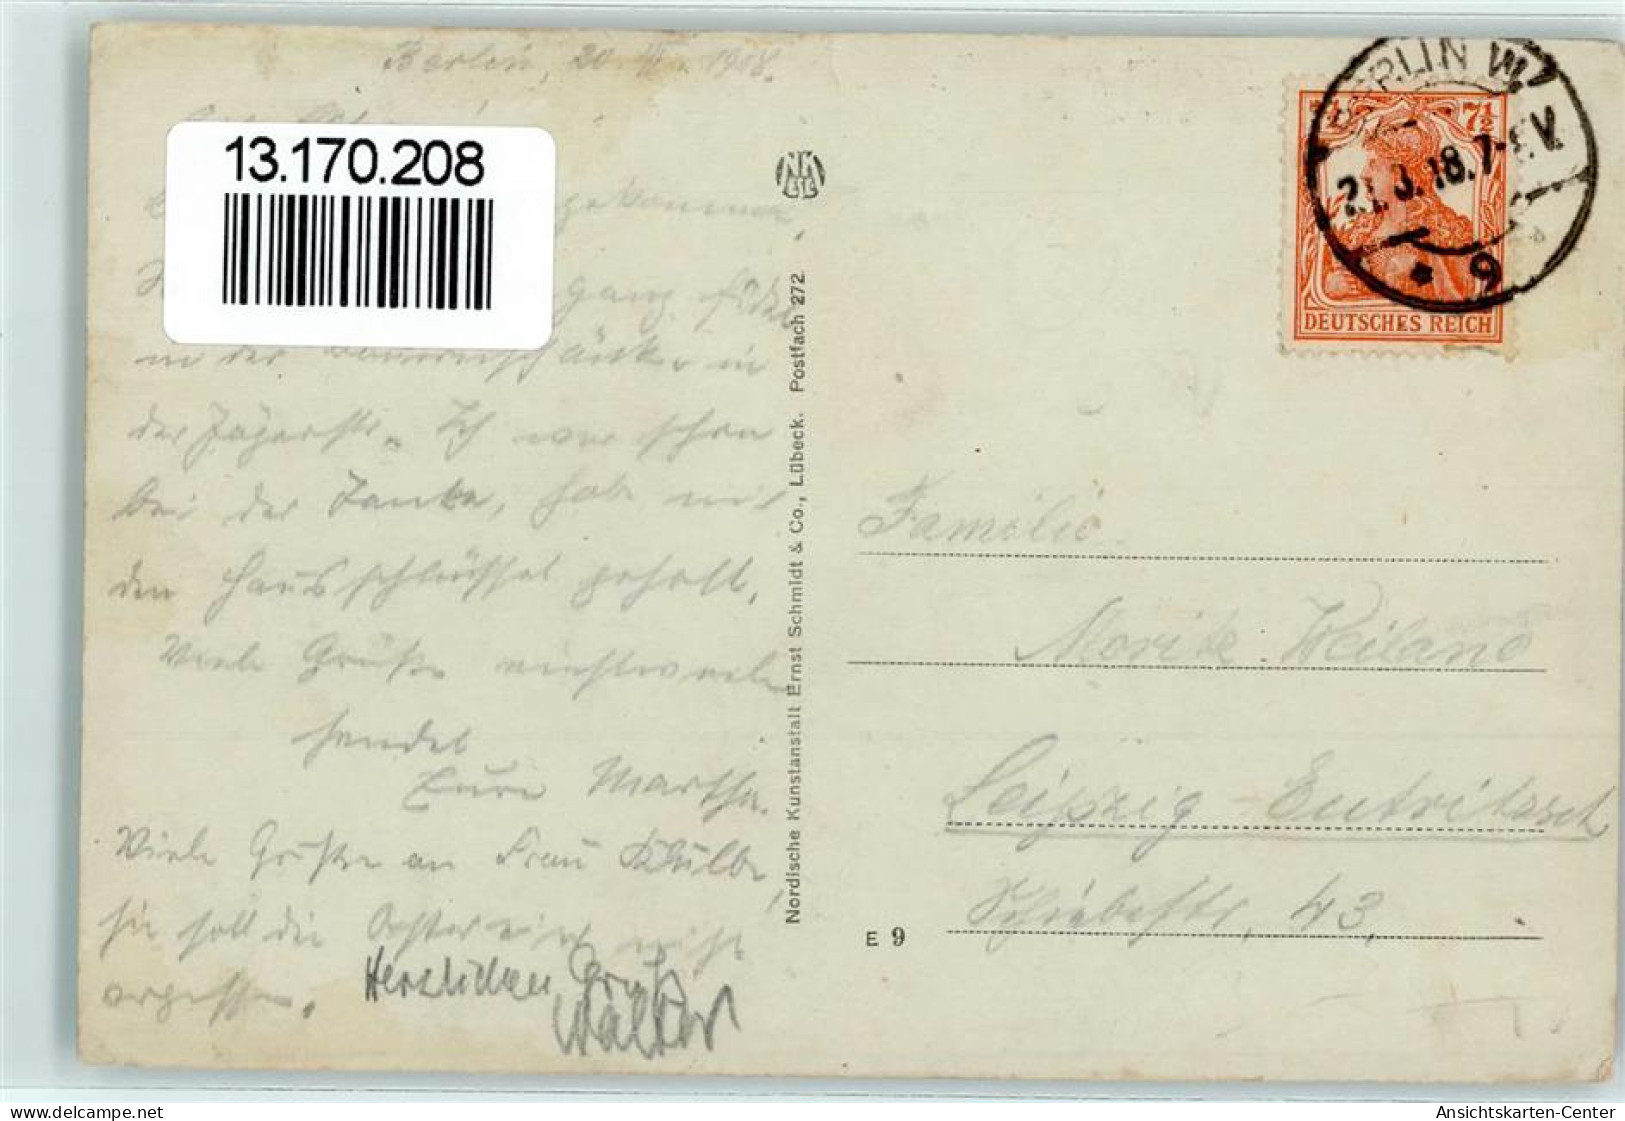 Berlin, 20. 1918.
13.170.208
gekommen,
ganz
in der in
der Jägerstr. Ich war schon
bei der Tante, habe mir
den Hausschlüssel geholt.
Viele Grüße
sendet
Eure Martha.
Viele Grüße an Frau
sie soll die nicht
vergessen.
Herzlichen Gruß
Walter
NK
Nordische Kunstanstalt Ernst Schmidt & Co., Lübeck. Postfach 272
BERLIN W
18.7-8V
* 9
7½ 7½
DEUTSCHES REICH
Familie
Moritz Weiland
Leipzig-Eutritzsch
Schiebestr. 43.
E 9
delcampe.net
Ansichtskarten-Center